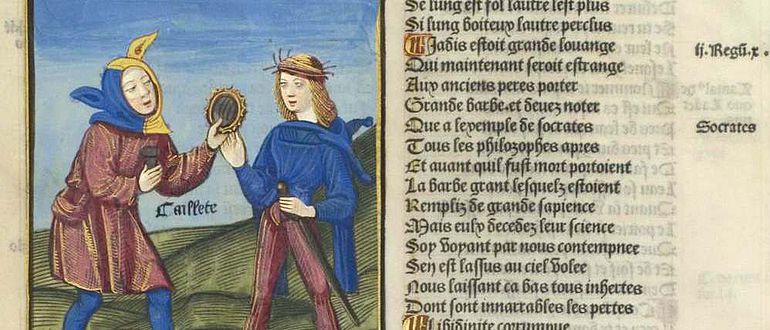 Caillete
Se lung est fol lautre lest plus
Si lung boiteux lautre perclus
Jadis estoit grande louange
ij. Regū. x.
Qui maintenant seroit estrange
Aux anciens peres porter
Grande barbe. et deuez noter
Que a lexemple de socrates
Socrates
Tous les philosophes apres
Et auant quil fust mort portoient
La barbe grant lesquelz estoient
Rempliz de grande sapience
Mais eulx decedez leur science
Soy voyant par nous contempnee
Sen est lassus au ciel volee
Nous laissant ca bas tous inhertes
Dont sont innarrables les pertes
Libidinite corrumpue